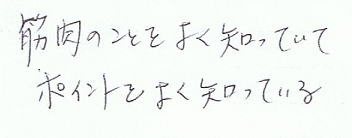 筋肉のことをよく知っていて
ポイントをよく知っている